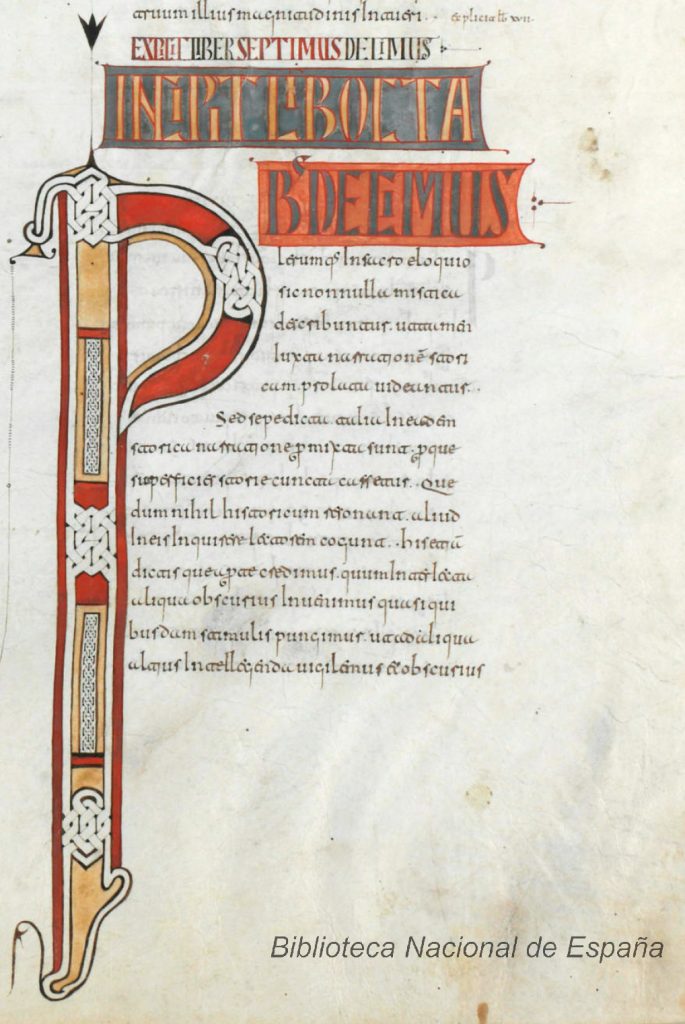 atuum illius magnitudinis Intueri. explicit lb xvii
EXPLICIT LIBER SEPTIMUS DECIMUS
INCIPIT LIB OCTA
Bˢ DECIMUS
P lerumqˢ In sacro eloquio
sic nonnulla mistica
describuntur. ut tamen
iuxta narrationē stori
cam prolata videantur.
Sed sepe dicta talia In eadem
storica narratione permixta sunt. per que
superficies storie cuncta cassetur. Que
dum nihil historicum resonant. aliud
In eis Inquirere lectorem cogunt. his etenī
dictis que aperte credimus. quum Interlecta
aliqua obscurius Invenimus quasi qui
busdam stimulis pungimus. ut ad aliqua
altius Intellegenda vigilemus et obscurius
Biblioteca Nacional de España